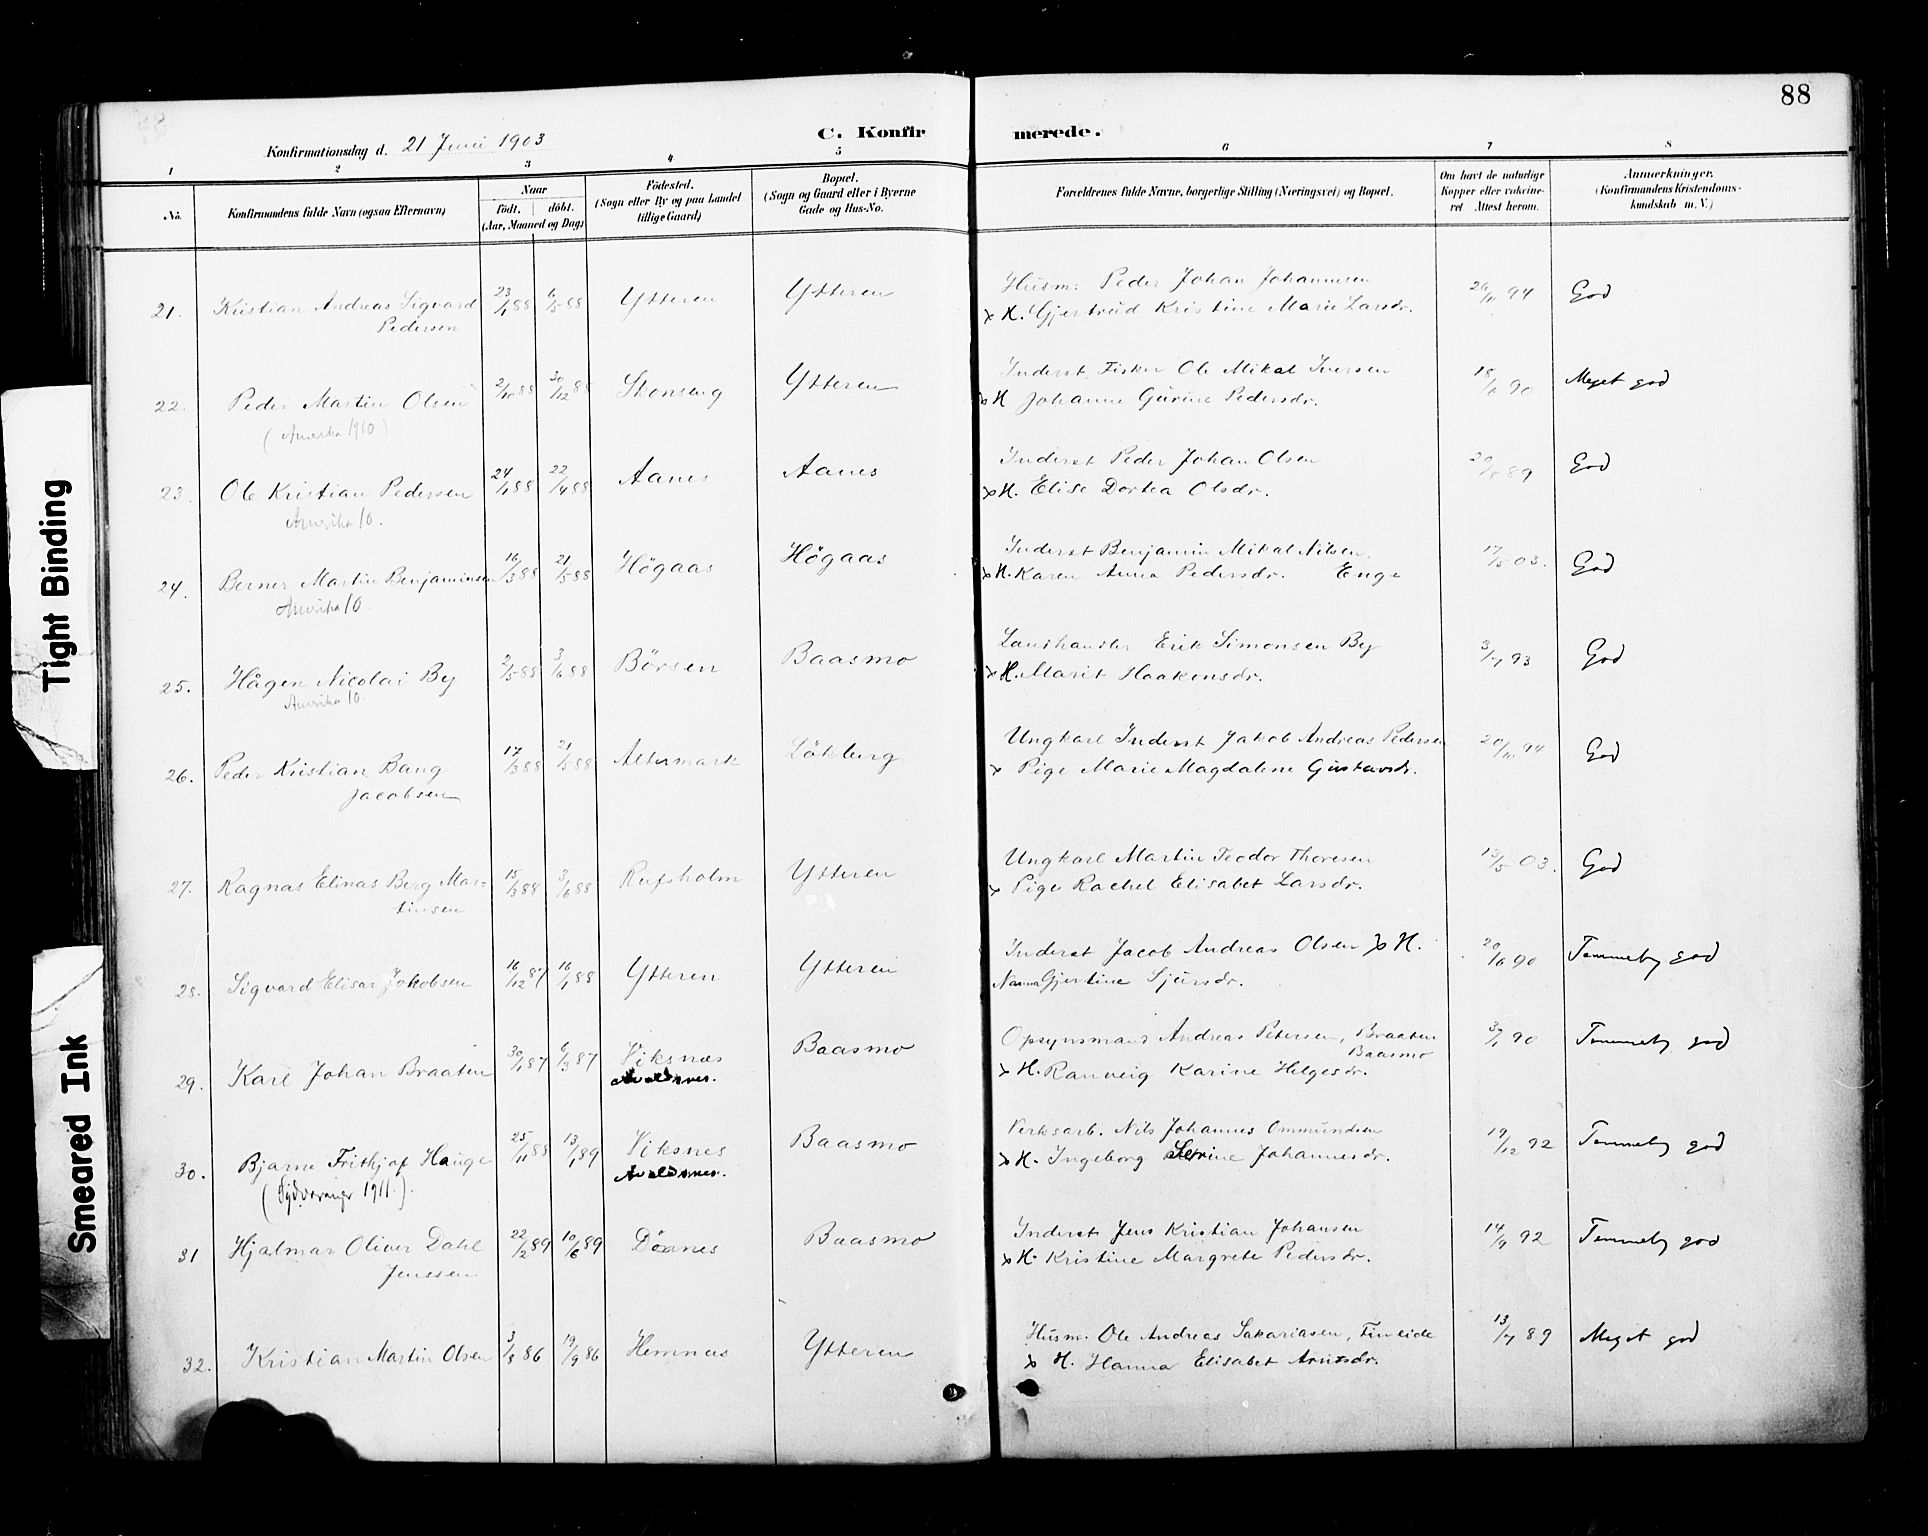 88
Konfirmationsdag d. 21 Juni 1903
C. Konfir
merede.
1 2 3 4 5 6 7 8
No.
Konfirmandens fulde Navn (ogsaa Efternavn)
Naar
født. døbt.
(Aar, Maaned og Dag)
Födested.
(Sogn eller By og paa Landet
tillige Gaard)
Bopæl.
(Sogn og Gaard eller i Byerne
Gade og Hus-No.
Forældrenes fulde Navne, borgerlige Stilling (Næringsvei) og Bopæl.
Om havt de naturlige
Kopper eller vakcine-
ret Attest herom.
Anmærkninger.
(Konfirmandens Kristendoms-
kundskab m. V.)
21. Kristian Andreas Sigvard 23/1 88 6/5 88 Ytteren Ytteren Husm. Peder Johan Johannesen 26/11 94 God
Pedersen & H. Gjertrud Kristine Marie Larsdr.
22. Peder Martin Olsen 2/10 88 30/12 88 Stenseng Ytteren Inderst, Fisker Ole Mikal Iversen 18/6 90 Meget god
(Amerika 1910) & H Johanne Gurine Pedersdr.
23. Ole Kristian Pedersen 24/1 88 22/4 88 Aanes Aanes Inderst Peder Johan Olsen 20/8 89 God
Amerika 10. & H. Elise Dortea Olsdr.
24. Berner Martin Benjaminsen 16/3 88 21/5 88 Högaas Högaas Inderst Benjamin Mikal Nilsen 17/5 03. God
Amerika 10. & H. Karen Anna Pedersdr. Enge
25. Hågen Nicolai By 2/5 88 3/6 88 Börsen Baasmo Landhandler Erik Simonsen By 3/7 93 God
Amerika 10. & H. Marit Haakensdr.
26. Peder Kristian Bang 17/3 88 21/5 88 Altermark Lökberg Ungkarl Inderst Jakob Andreas Pedersen 20/11 94 God
Jacobsen & Pige Marie Magdalene Gustavsdr.
27. Ragnas Elinas Berg Mar- 15/3 88 3/6 88 Rufsholm Ytteren Ungkarl Martin Teodor Thoresen 13/5 03. God
tinsen & Pige Rachel Elisabet Larsdr.
28. Sigvard Elisar Jakobsen 16/12 87 16/1 88 Ytteren Ytteren Inderst Jacob Andreas Olsen & H. 20/6 90 Temmelig god
Nanna Gjertine Sjursdr.
29. Karl Johan Braaten 30/1 87 6/3 87 Viksnæs Baasmo Opsynsmand Andreas Petersen, Braaten 3/1 90 Temmelig god
Avaldsnes. Baasmo
& H. Ranveig Karine Helgesdr.
30. Bjarne Frithjof Hauge 25/11 88 13/1 89 Viksnes Baasmo Verksarb. Nils Johannes Ommundsen 19/12 92 Temmelig god
(Sydvaranger 1911.) Avaldsnes. & H. Ingeborg Serine Johannesdr.
31 Hjalmar Oliver Dahl 22/2 89 10/6 89 Dönnes Baasmo Inderst Jens Kristian Johansen 14/9 92 Temmelig god
Jenssen & H. Kristine Margrete Pedersdr.
32. Kristian Martin Olsen 3/8 86 19/9 86 Hemnæs Ytteren Husm. Ole Andreas Sakariasen, Fineide 13/7 89 Meget god
& H. Hanna Elisabet Arntsdr.
Tight Binding
Smeared Ink